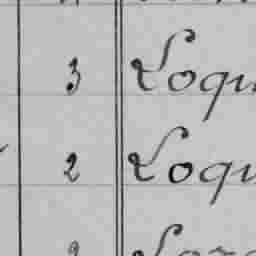 3 Loqu
2 Loqu